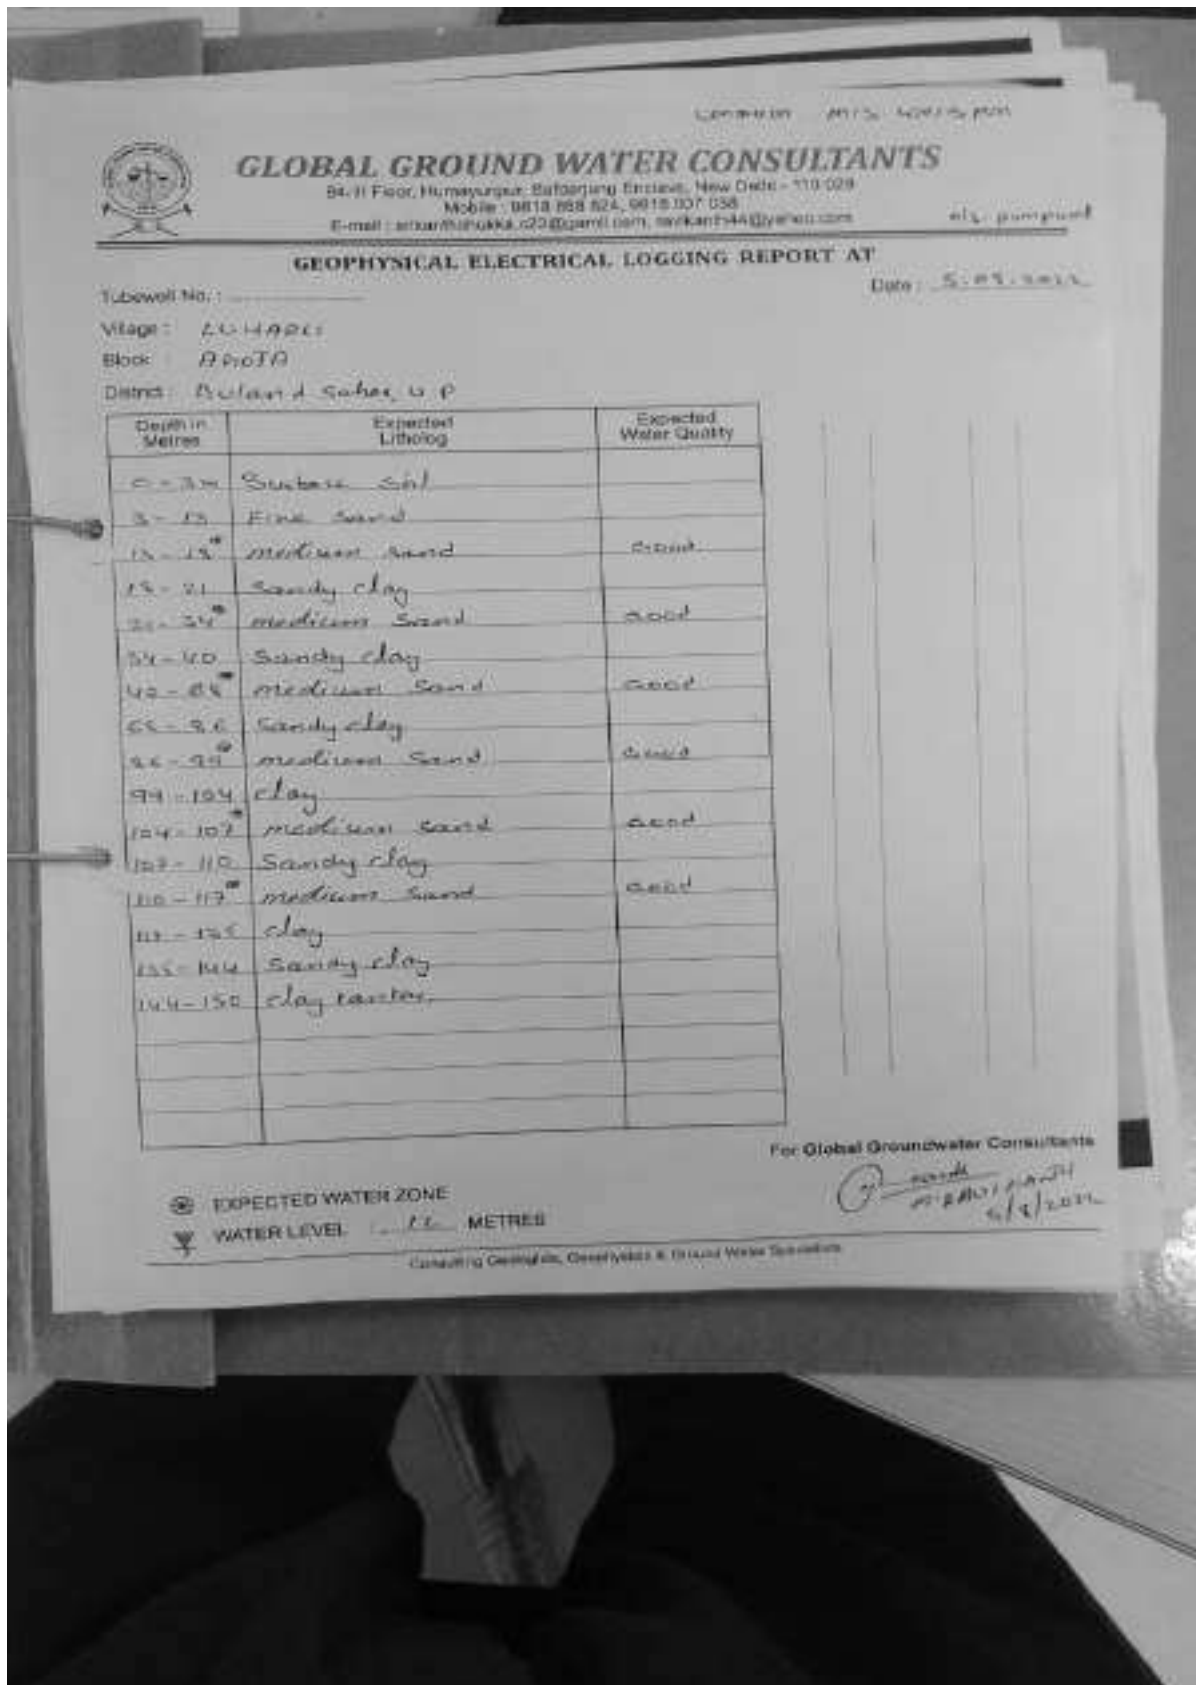 GLOBAL GROUND WATER CONSULTANTS
84, II Floor, Humayunpur, Safdarjung Enclave, New Delhi - 110 029
Mobile : 9818 868 624,
E-mail :
GEOPHYSICAL ELECTRICAL LOGGING REPORT AT
Date : 5.08.2022
Tubewell No. :
Village : LUHARLI
Block :
District : Buland Saher, U P
Depth in Metres Expected Litholog Expected Water Quality
0 - 3m Surface Soil
3 - 13 Fine Sand
13 - 18 medium sand Good
18 - 21 Sandy clay
21 - 34 medium Sand Good
34 - 40 Sandy clay
40 - 68 medium Sand Good
68 - 86 Sandy clay
86 - 99 medium Sand Good
99 - 104 clay
104 - 107 medium sand Good
107 - 110 Sandy clay
110 - 117 medium Sand Good
117 - 135 clay
135 - 144 Sandy clay
144 - 150 clay
For Global Groundwater Consultants
5/8/2022
EXPECTED WATER ZONE
WATER LEVEL : METRES
Consulting Geologists, Geophysists & Ground Water Specialists